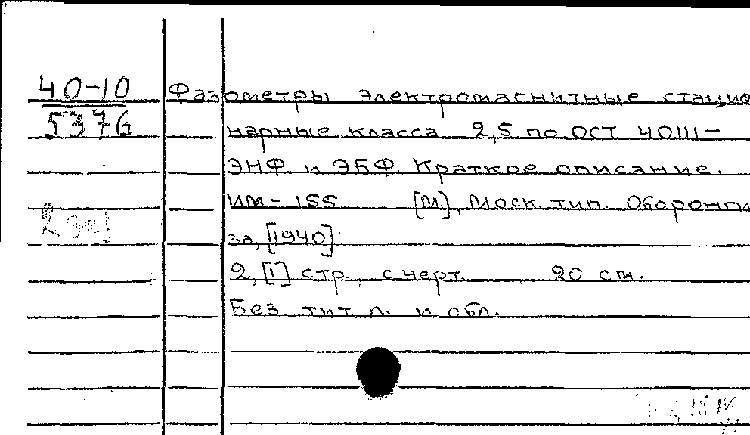 40-10
5376
Фазометры электромагнитные стацио
нарные класса 2,5 по ОСТ 40111-
ЭНФ и ЭБФ. Краткое описание.
ИМ-155 [М], Моск. тип. Оборонги
за, [1940]
2, [1] стр., с черт. 20 см.
Без тит. л. и обл.